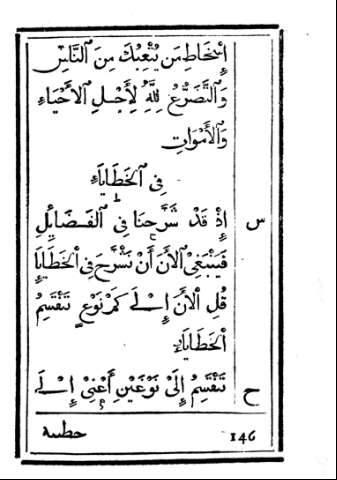 إِسْخَاطِ مَن يُتْعِبُكَ مِنَ ٱلنَّاسِ
وَٱلتَّضَرُّعُ لِلَّهِ لِأَجْلِ ٱلأَحْيَاءِ
وَٱلأَمْوَاتِ
فِي ٱلخَطَايَاءِ
س إِذْ قَدْ شَرَّحْنَا فِي ٱلفَضَائِلِ
فَيَنْبَغِي ٱلأَنَ أَنْ نَشْرَحَ فِي ٱلخَطَايَا
قُلِ ٱلأَنَ إِلَى كَمْ نَوْعٍ تَنْقَسِمُ
ٱلخَطَايَاءِ
ح تَنْقَسِمُ إِلَى نَوْعَيْنِ أَعْنِي إِلَى
146 خطىىة